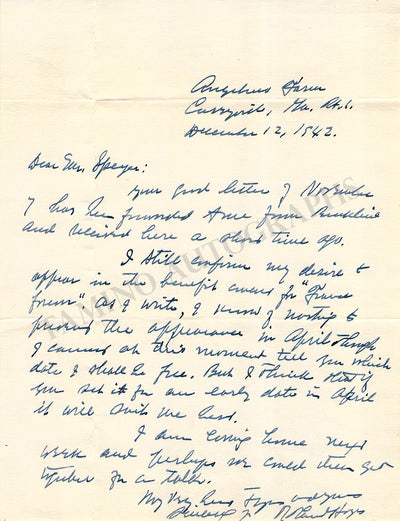 Angelmo Farm
Curryville, Ga. Rt. 1.
December 12, 1942.
Dear Mr. Speyer:
Your good letter of November
7 has been forwarded to me from Brookline
and received here a short time ago.
I still confirm my desire to
appear in the benefit concert for "France
Forever". As I write, I know of nothing to
prevent the appearance in April though
I cannot at this moment tell you which
date I shall be free. But I think that if
you set it for an early date in April
it will suit me best.
I am coming home next
week and perhaps we could then get
together for a talk.
My very best to you and yours
Sincerely
Roland Hayes
TAMINO AUTOGRAPHS